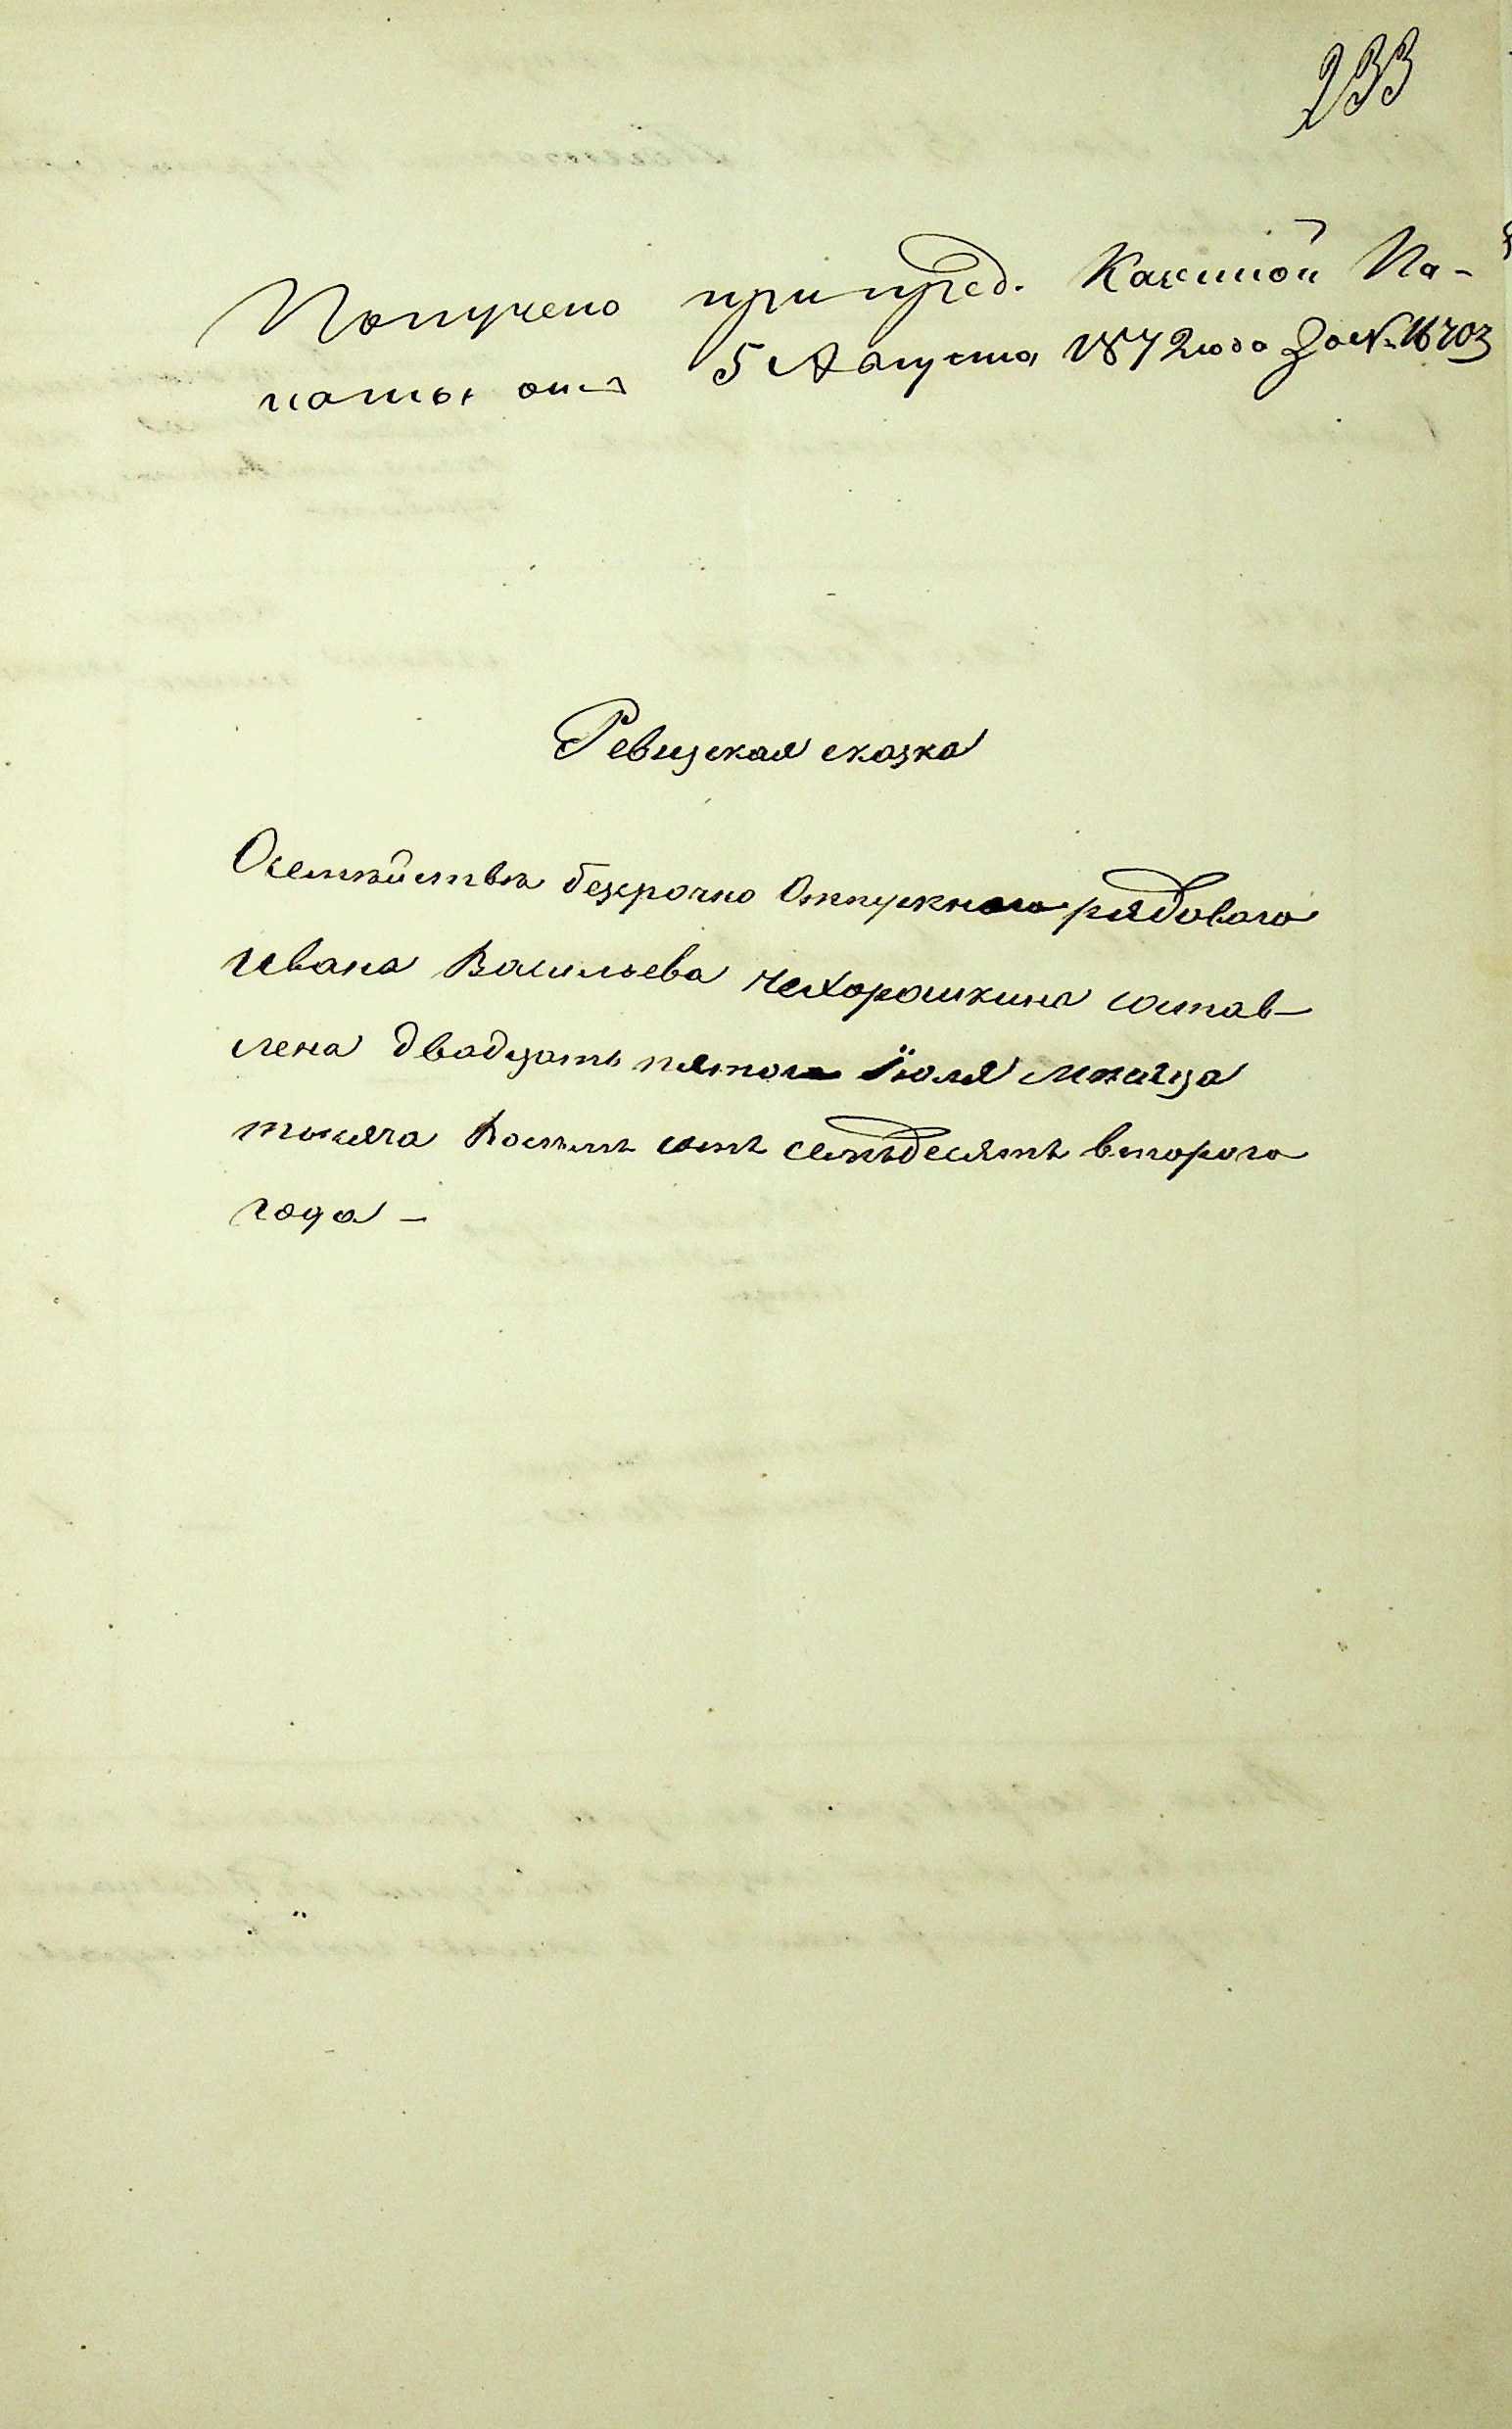 233
Получено при пред. Казенной Па-
латы отъ 5 Августа 1872 года За № 16703
Ревизская сказка
Осемѣйствѣ безсрочно Отпускного рядоваго
Ивана Васильева состав-
лена двадцать пятого Іюля мѣсяца
тысяча Восемь сотъ семьдесятъ второго
года –